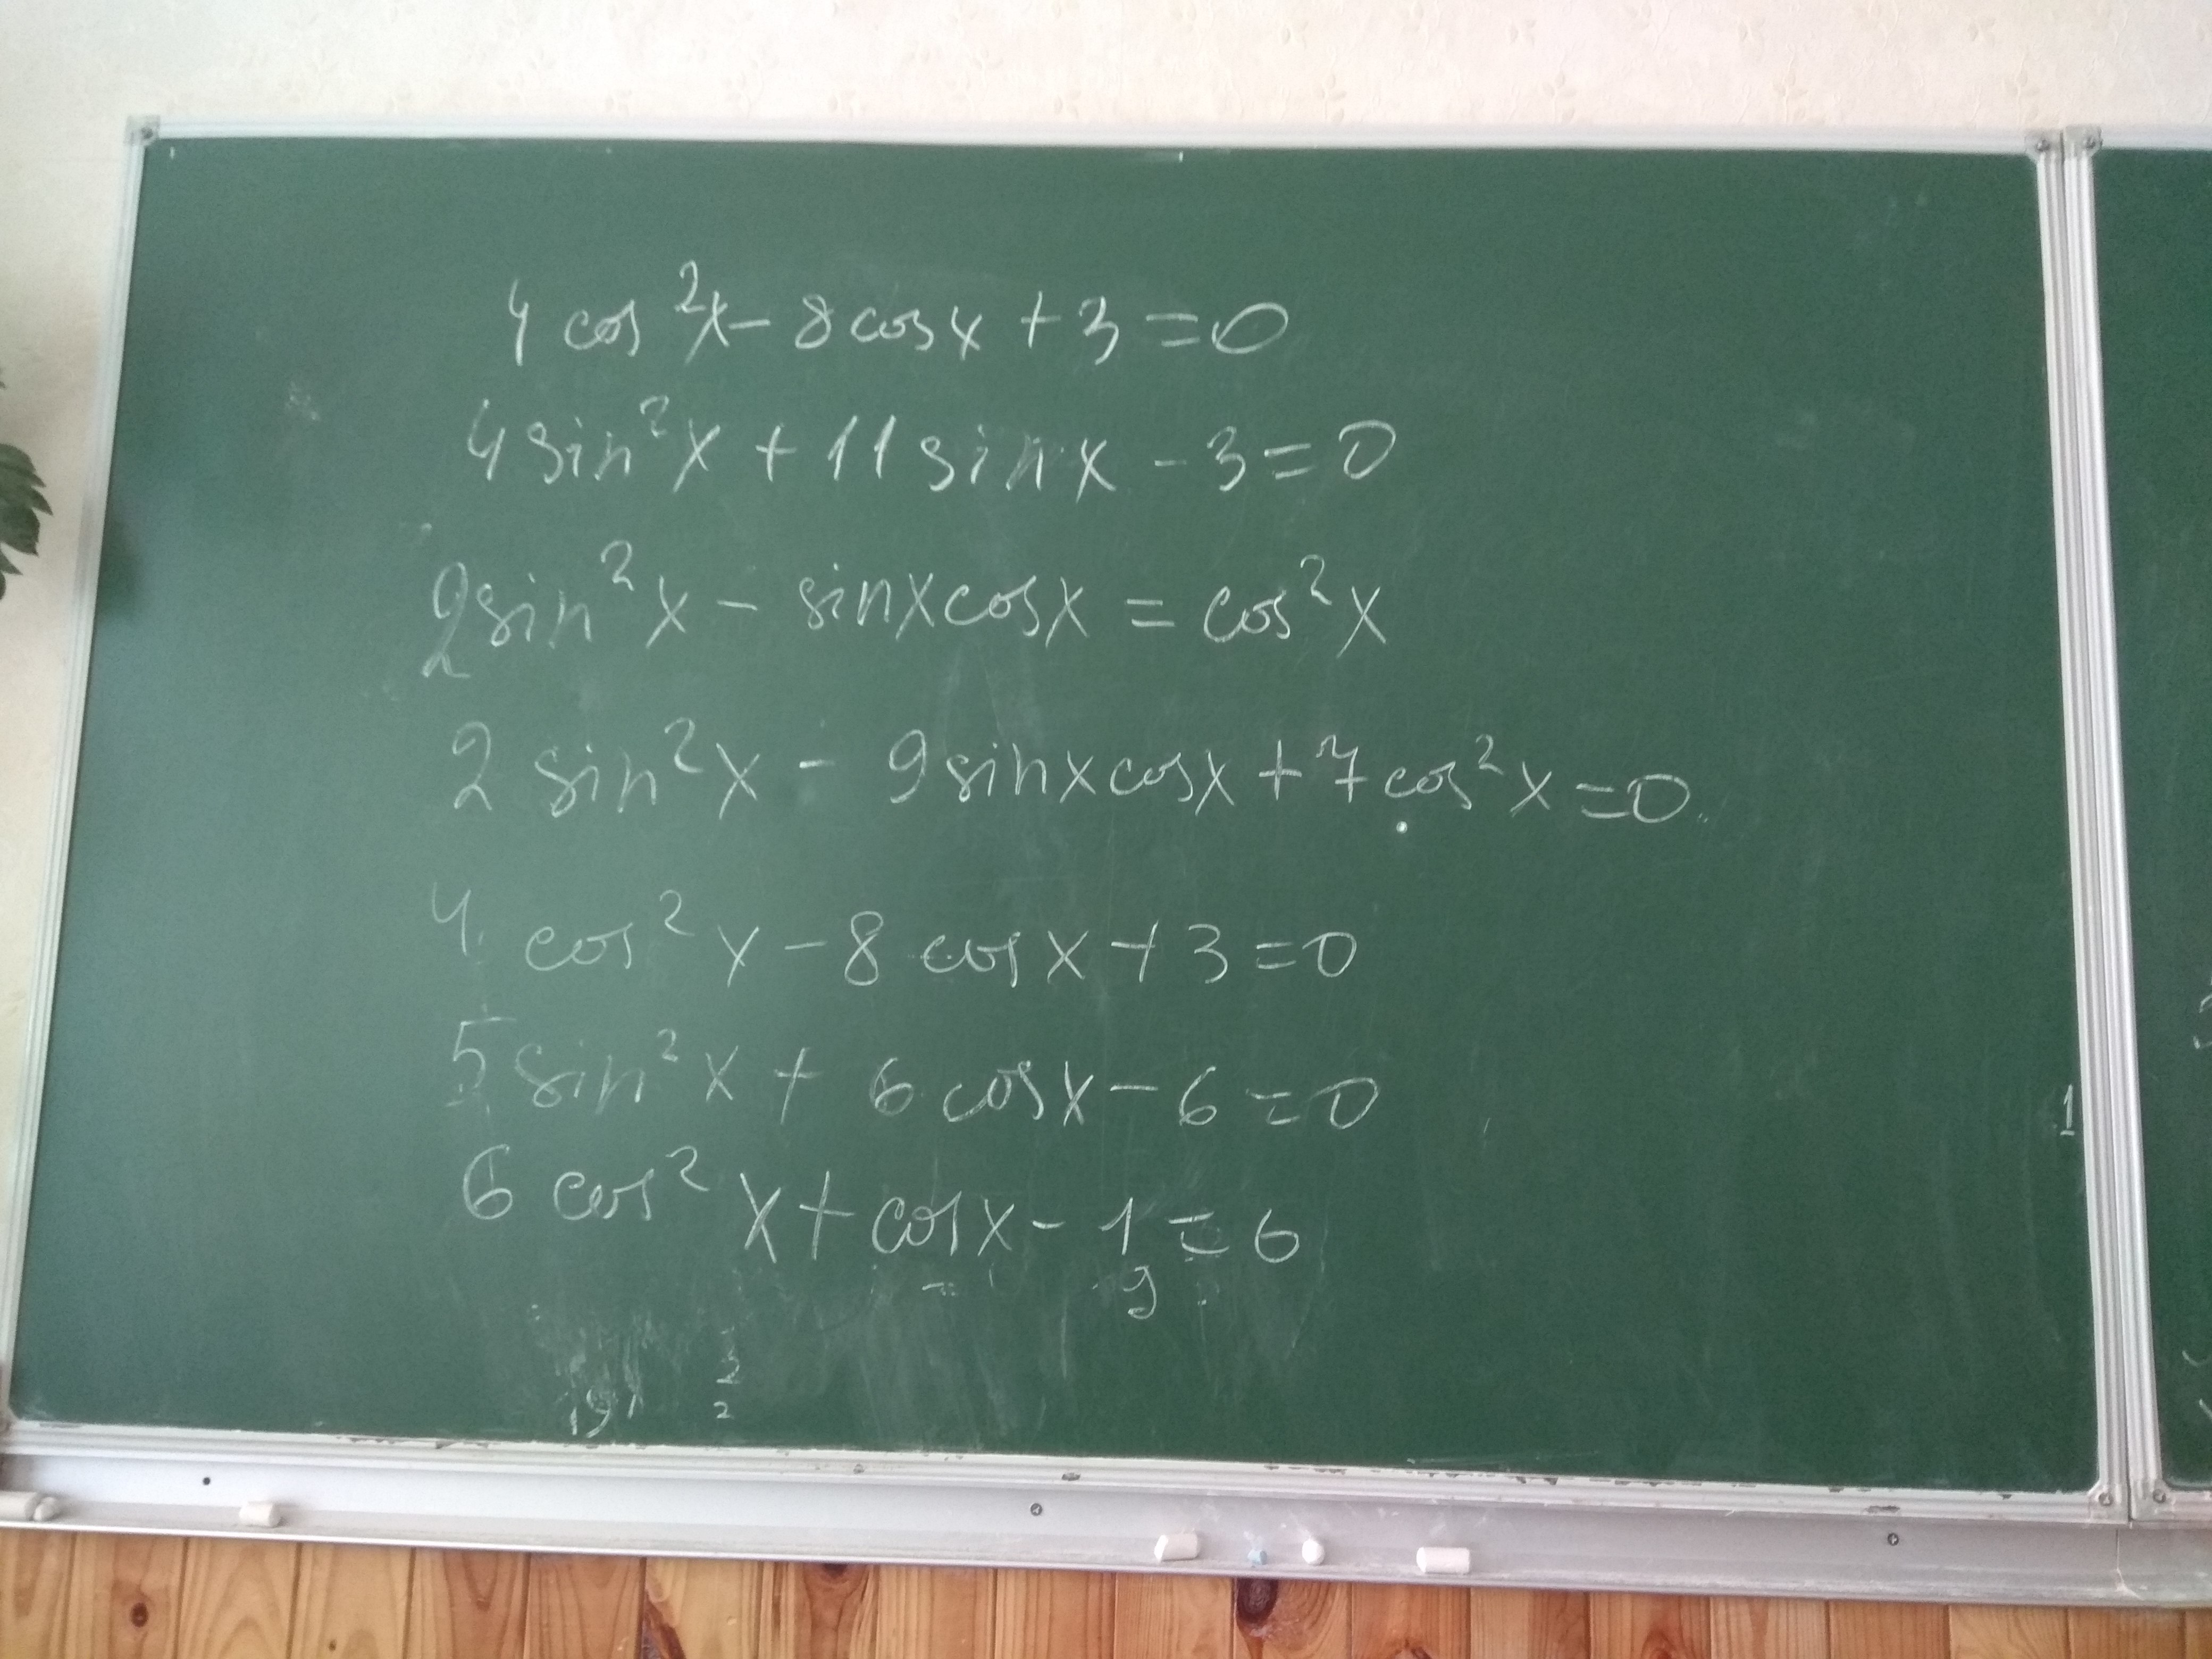 4 cos²x - 8 cosx + 3 = 0
4 sin²x + 11 sinx - 3 = 0
2 sin²x - sinxcosx = cos²x
2 sin²x - 9 sinxcosx + 7 cos²x = 0
4 cos²x - 8 cosx + 3 = 0
5 sin²x + 6 cosx - 6 = 0
6 cos²x + cosx - 1 = 6
1